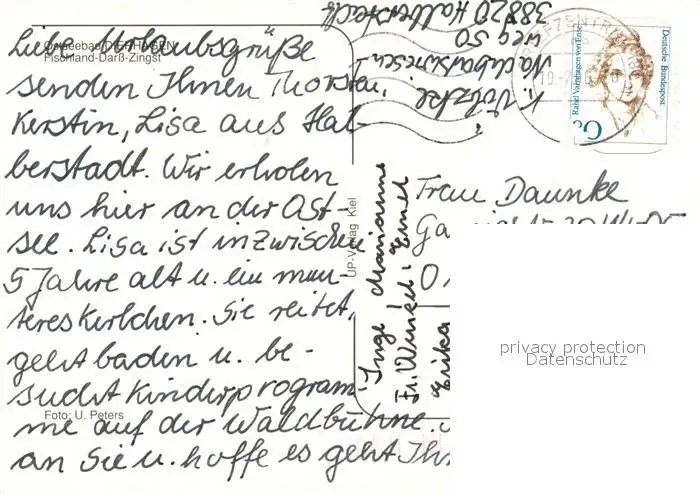 Ostseebad DIERHAGEN
Fischland-Darß-Zingst
Liebe Urlaubsgrüße
senden Ihnen Thorsten,
Kerstin, Lisa aus Hal-
berstadt. Wir erholen
uns hier an der Ost-
see. Lisa ist inzwischen
5 Jahre alt u. ein mun-
teres Kerlchen. Sie reitet,
geht baden u. be-
sucht Kinderprogram-
me auf der Waldbühne.
an Sie u. hoffe es geht Ihn
Foto: U. Peters
UP-Verlag Kiel
K.
weg 50
38820 Halberstadt
Deutsche Bundespost
Rahel Varnhagen von Ense
Frau Daunke
Inge Marianne
Fr.
Erika
privacy protection
Datenschutz